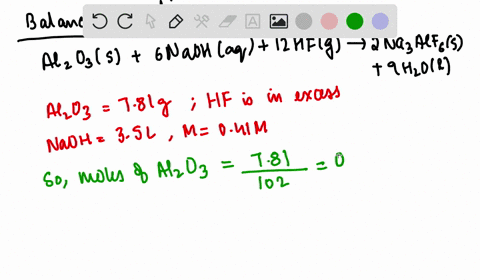 Balance
Al2O3(s) + 6NaOH(aq) + 12HF(g) → 2Na3AlF6(s)
+ 9H2O(l)
Al2O3 = 7.81g ; HF is in excess
NaOH = 3.5L , M = 0.41M
So, moles of Al2O3 = 7.81/102 = 0